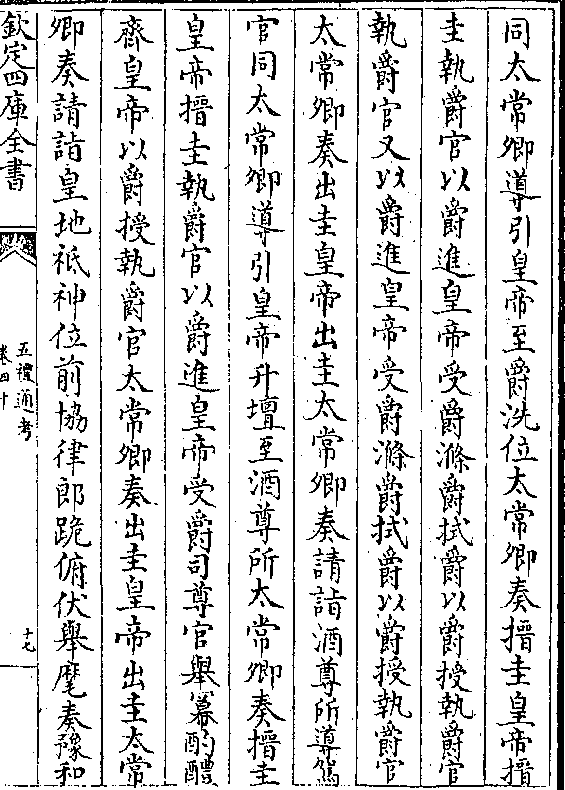 同太常卿導引皇帝至爵洗位太常卿奏搢圭皇帝搢
圭執爵官以爵進皇帝受爵滌爵拭爵以爵授執爵官
執爵官又以爵進皇帝受爵滌爵拭爵以爵授執爵官
太常卿奏出圭皇帝出圭太常卿奏請詣酒尊所導駕
官同太常卿導引皇帝升壇至酒尊所太常卿奏搢圭
皇帝搢圭執爵官以爵進皇帝受爵司尊官舉冪酌醴
齊皇帝以爵授執爵官太常卿奏出圭皇帝出圭太常
卿奏請詣皇地祇神位前協律郎跪俯伏舉麾奏豫和
欽定四庫全書
五禮通考
卷四十
十七